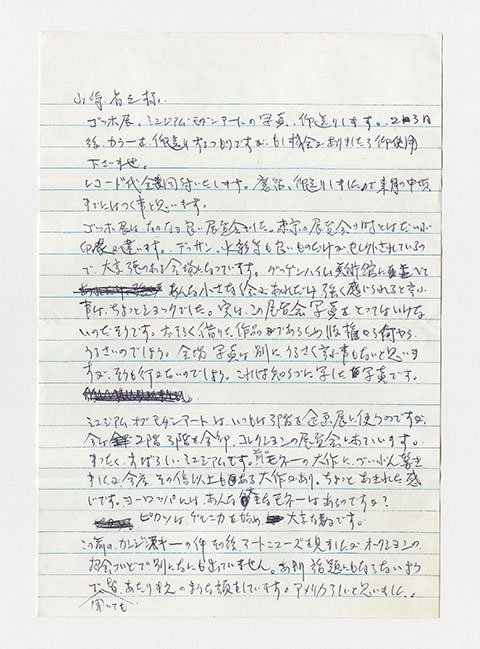 山崎省三様、
ゴッホ展、ミュジアム・モダンアートの写真、御送りします。2、3日
後、カラーも御送りするつもりですが、もし機会がありましたら御使用
下さいませ。
レコード代金同封いたします。 御送りしましたので来月の中頃
までにはつく事と思います。
ゴッホ展はなかなか良い展覧会でした。東京の展覧会の時とはだいぶ
印象が違います。デッサン、水彩等も良いものだけが
で、大変 のある会場となってです。グッゲンハイム美術館に
あんな小さな会場であれだけ強く感じられると云う
事は、ちょっとショックでした。実は、この展覧会写真をとってはいけな
いのだそうです。おそらく借りた作品 であるため版権やら何やら
うるさいのでしょう。会場写真は別にうるさく云う事もないと思いま
すが、そうも行かないのでしょう。これは知らずに写した写真です。
ミュジアム オブ モダンアートは、いつもは1階を企画展に使うのですが、
今は2階3階を全部、コレクションの展覧会をしています。
まったく、すばらしいミュジアムです。前モネーの大作に、ずいぶん驚き
ましたが今度、その倍以上もある大作があり、ちょっとあきれた感
じです。ヨーロッパには、あんな モネーはあるのですか?
ピカソはゲルニカを始め、大変な数です。
この前の、カンジンスキーの件その後、アートニュースを見ましたが、オークションの
別になにも出ていません。あまり話題にもならないよう
で皆、あたりまえのような顔をしています。アメリカらしいと思いました。
聞いても